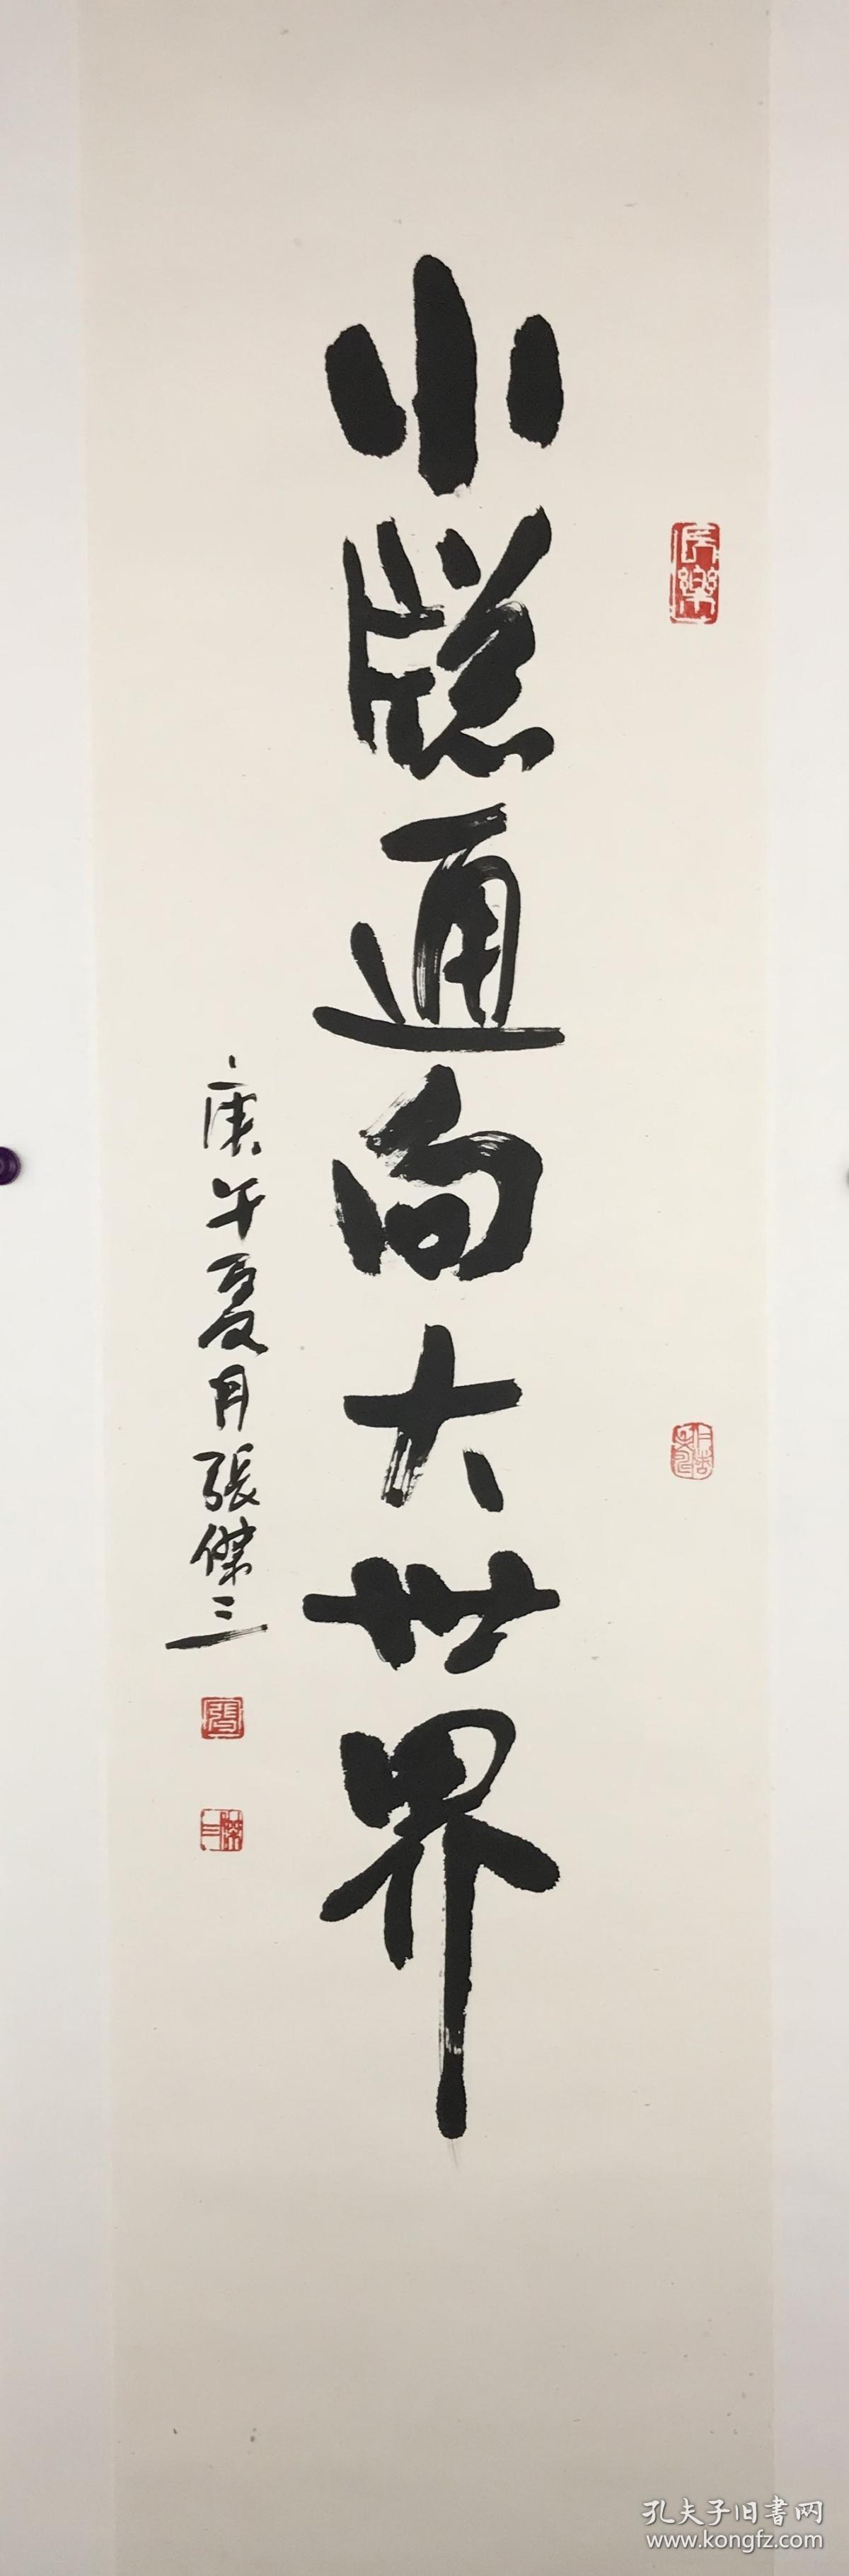 小牕通向大世界
庚午夏月張傑三
長樂
張
傑三
孔夫子旧書网
www.kongfz.com